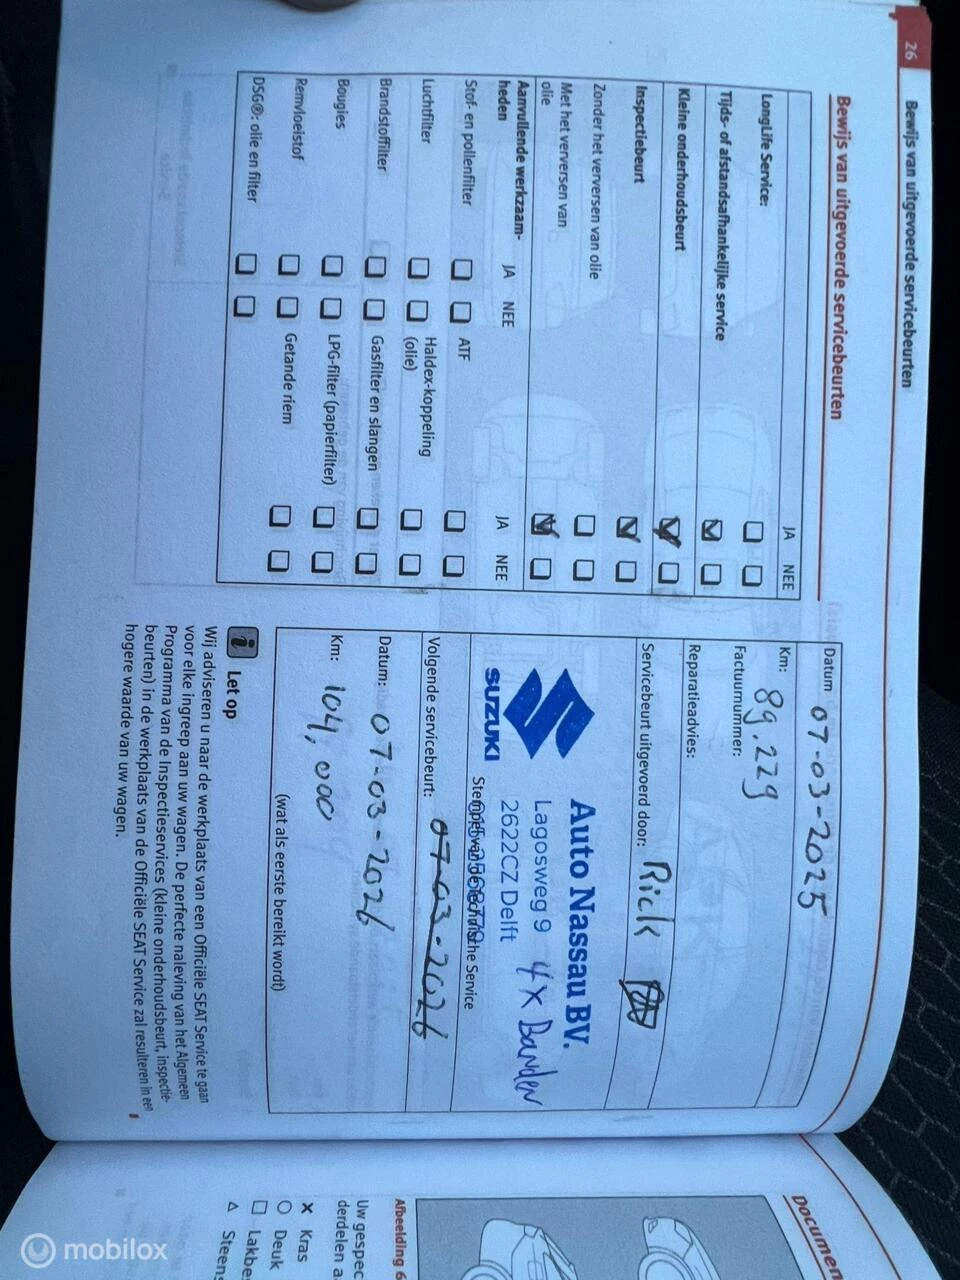 26
Bewijs van uitgevoerde servicebeurten
Bewijs van uitgevoerde servicebeurten
JA NEE
LongLife Service:
Tijds- of afstandsafhankelijke service
Kleine onderhoudsbeurt
Inspectiebeurt
Zonder het verversen van olie
Met het verversen van
olie
Aanvullende werkzaam-
heden
JA NEE
JA NEE
Stof- en pollenfilter
ATF
Luchtfilter
Haldex-koppeling
(olie)
Brandstoffilter
Gasfilter en slangen
Bougies
LPG-filter (papierfilter)
Remvloeistof
Getande riem
DSG®: olie en filter
Datum 07-03-2025
Km: 89.229
Factuurnummer:
Reparatieadvies:
Servicebeurt uitgevoerd door: Rick
SUZUKI
Auto Nassau BV.
Lagosweg 9
2622CZ Delft
4x Banden
Stempel van de Technische Service
Volgende servicebeurt: 07-03-2026
Datum: 07-03-2026
Km: 104,000
(wat als eerste bereikt wordt)
i Let op
Wij adviseren u naar de werkplaats van een Officiële SEAT Service te gaan
voor elke ingreep aan uw wagen. De perfecte naleving van het Algemeen
Programma van de Inspectieservices (kleine onderhoudsbeurt, inspectie-
beurten) in de werkplaats van de Officiële SEAT Service zal resulteren in een
hogere waarde van uw wagen.
Documen
Afbeelding 6
Uw gespec
derdelen a
x Kras
Deuk
Lakbe
Steens
mobilox